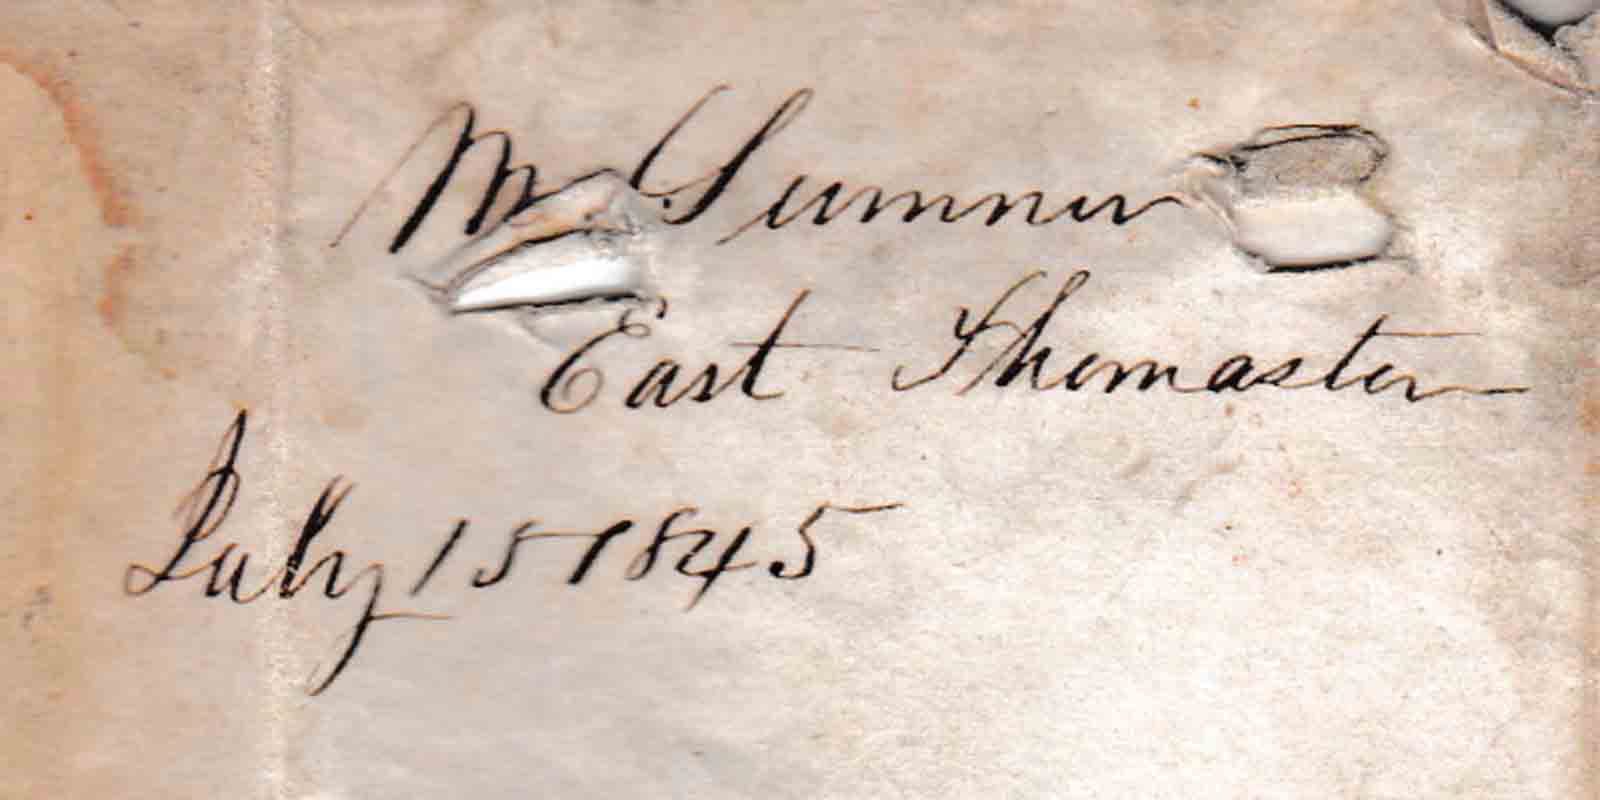 M. Sumner
East Thomaston
July 15 1845